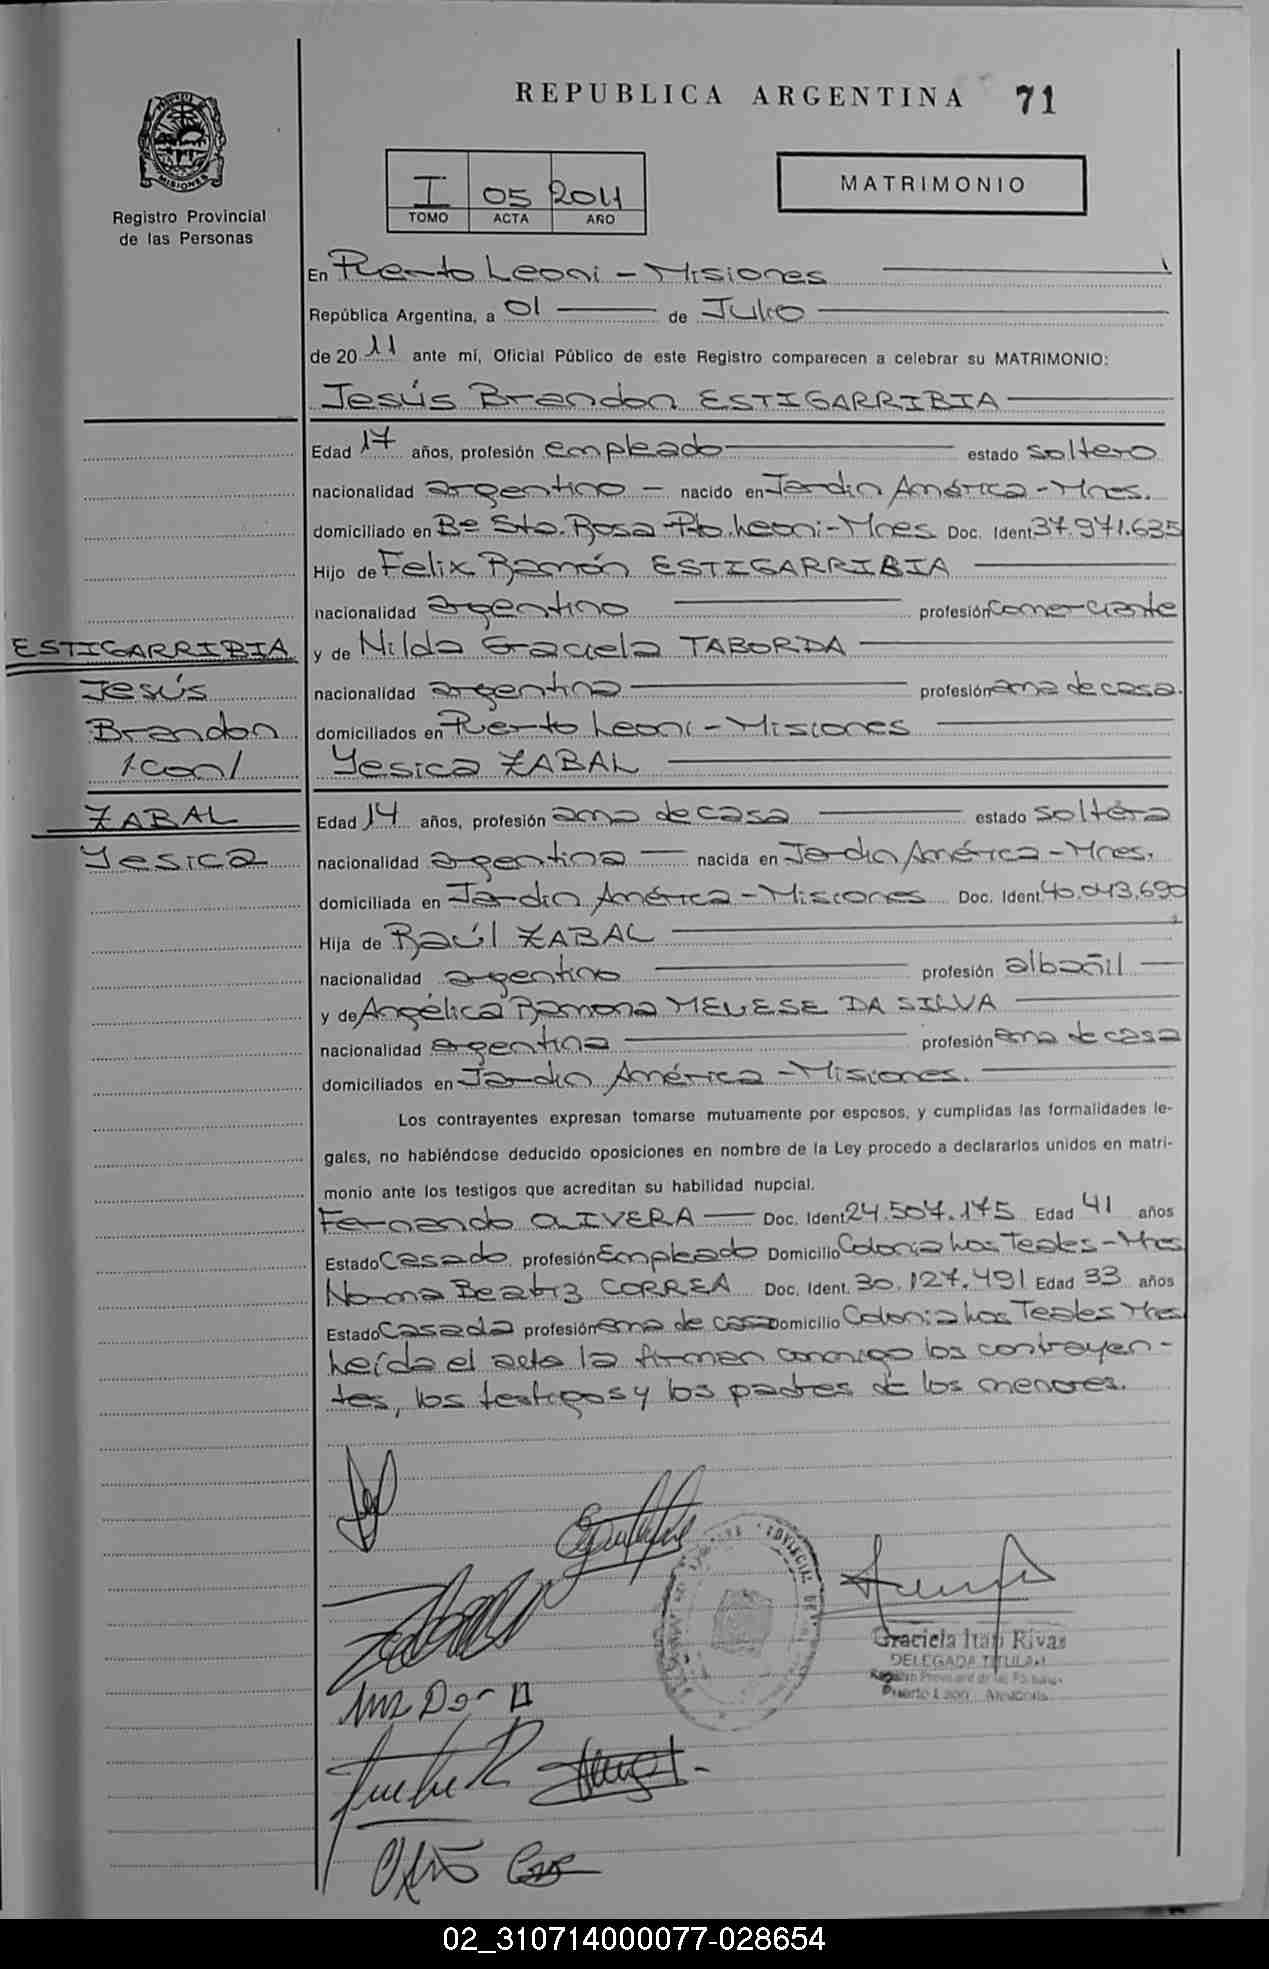 REPUBLICA ARGENTINA 71
MISIONES
Registro Provincial
de las Personas
I 05 2011
TOMO ACTA AÑO
MATRIMONIO
En Puerto Leoni - Misiones
República Argentina, a 01 de Julio
de 2011 ante mí, Oficial Público de este Registro comparecen a celebrar su MATRIMONIO:
Jesús Brandon ESTIGARRIBIA
Edad 17 años, profesión empleado estado soltero
nacionalidad argentino - nacido en Jardín América - Mnes.
domiciliado en Bº Sta. Rosa - Pto. Leoni - Mnes Doc. Ident 37.971.635
Hijo de Felix Ramón ESTIGARRIBIA
nacionalidad argentino profesión comerciante
y de Nilda Graciela TABORDA
nacionalidad argentina profesión ama de casa.
domiciliados en Puerto Leoni - Misiones
Yesica ZABAL
ESTIGARRIBIA
Jesús
Brandon
/con/
ZABAL
Yesica
Edad 14 años, profesión ama de casa estado soltera
nacionalidad argentina - nacida en Jardín América - Mnes.
domiciliada en Jardín América - Misiones Doc. Ident. 40.043.690
Hija de Raúl ZABAL
nacionalidad argentino profesión albañil
y de Angélica Ramona MEUESE DA SILVA
nacionalidad argentina profesión ama de casa
domiciliados en Jardín América - Misiones.
Los contrayentes expresan tomarse mutuamente por esposos, y cumplidas las formalidades le-
gales, no habiéndose deducido oposiciones en nombre de la Ley procedo a declararlos unidos en matri-
monio ante los testigos que acreditan su habilidad nupcial.
Fernando OLIVERA Doc. Ident 24.507.175 Edad 41 años
Estado Casado profesión Empleado Domicilio Colonia Los Teales - Mnes
Norma Beatriz CORREA Doc. Ident. 30.127.491 Edad 33 años
Estado Casada profesión ama de casa Domicilio Colonia Los Teales Mnes
Leída el acta la firman conmigo los contrayen-
tes, los testigos y los padres de los menores.
Graciela Itatí Rivas
DELEGADA TITULAR
Registro Provincial de las Personas
Puerto Leoni Misiones
02_310714000077-028654